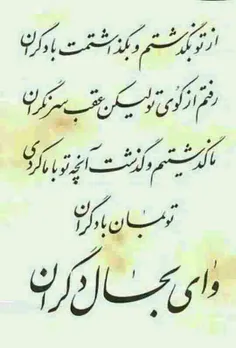 از تو بگذشتم و بگذاشتمت با دگران
رفتم از کوی تو لیکن عقب سر نگران
ما گذشتیم و گذشت آنچه تو با ما کردی
تو بمان با دگران
وای بحال دگران